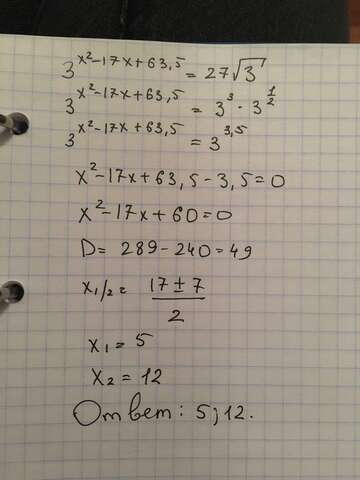 3^{x²-17x+63,5} = 27√3
3^{x²-17x+63,5} = 3³ · 3^{1/2}
3^{x²-17x+63,5} = 3^{3,5}
x²-17x+63,5-3,5=0
x²-17x+60=0
D= 289-240=49
x_{1/2} = (17±7)/2
x₁ = 5
x₂ = 12
Ответ: 5;12.